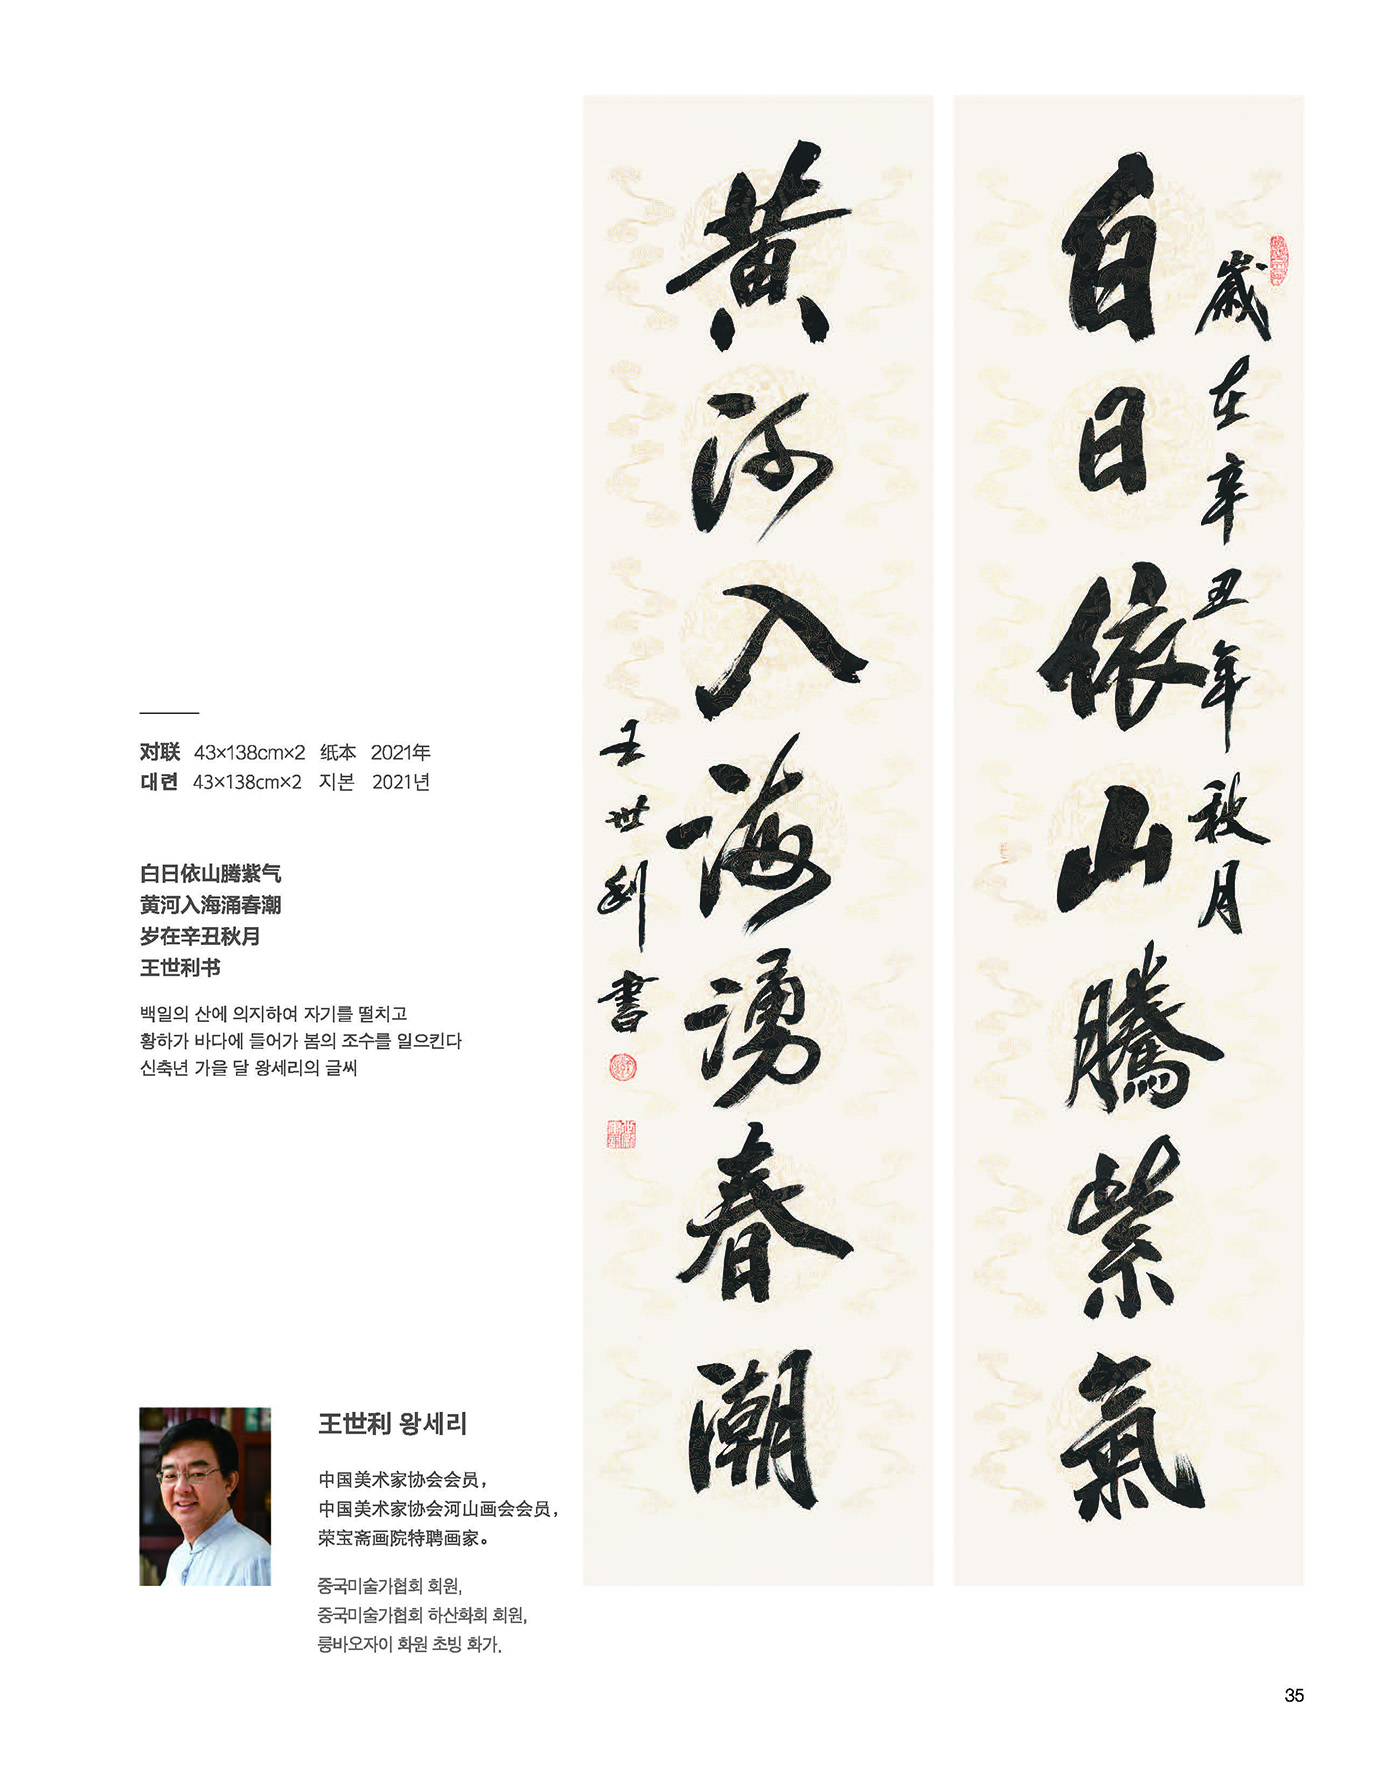 白日依山騰紫氣
歲在辛丑年秋月
黃河入海湧春潮
王世利書
对联 43×138cm×2 纸本 2021年
대련 43×138cm×2 지본 2021년
白日依山腾紫气
黄河入海涌春潮
岁在辛丑秋月
王世利书
백일의 산에 의지하여 자기를 떨치고
황하가 바다에 들어가 봄의 조수를 일으킨다
신축년 가을 달 왕세리의 글씨
王世利 왕세리
中国美术家协会会员，
中国美术家协会河山画会会员，
荣宝斋画院特聘画家。
중국미술가협회 회원,
중국미술가협회 하산화회 회원,
룽바오자이 화원 초빙 화가.
35